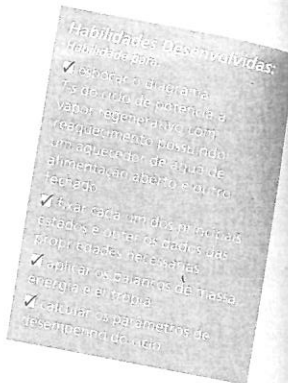 Habilidades Desenvolvidas:
Habilidade para:
elaborar o diagrama
T-s de ciclo de potência a
vapor regenerativo com
reaquecimento possuindo
um aquecedor de água de
alimentação aberto e outro
fechado
fixar cada um dos principais
estados e obter os dados das
propriedades necessárias
aplicar os balanços de massa,
energia e entropia
calcular os parâmetros de
desempenho do ciclo